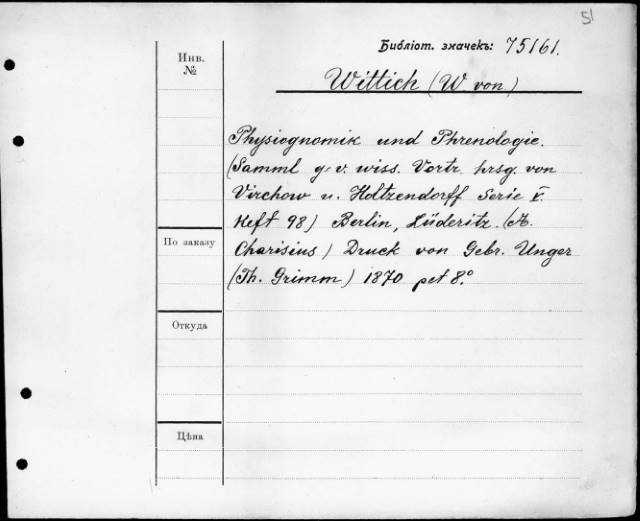 51
Библіот. значекъ: 75161.
Инв.
№
Wittich (W von)
Physiognomik und Phrenologie.
(Samml g. v. wiss. Vortr. hrsg. von
Virchow u. Holtzendorff Serie V.
Heft 98) Berlin, Lüderitz. (A.
По заказу
Charisius) Druck von Gebr. Unger
(Th. Grimm) 1870 pet 8.°
Откуда
Цѣна